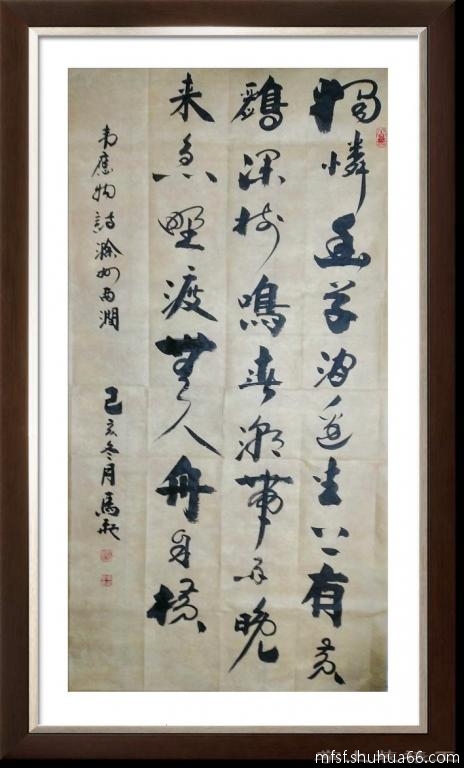 獨憐幽草澗邊生上有黄
鸝深樹鳴春潮帶雨晚
来急野渡無人舟自横
韦應物詩滁州西澗
己亥冬月馬
mfsf.shuhua66.com